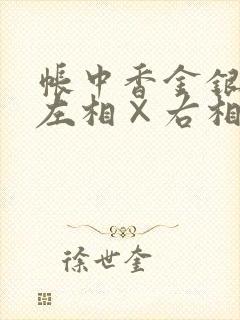 帐中香金银
左相×右相
徐世奎